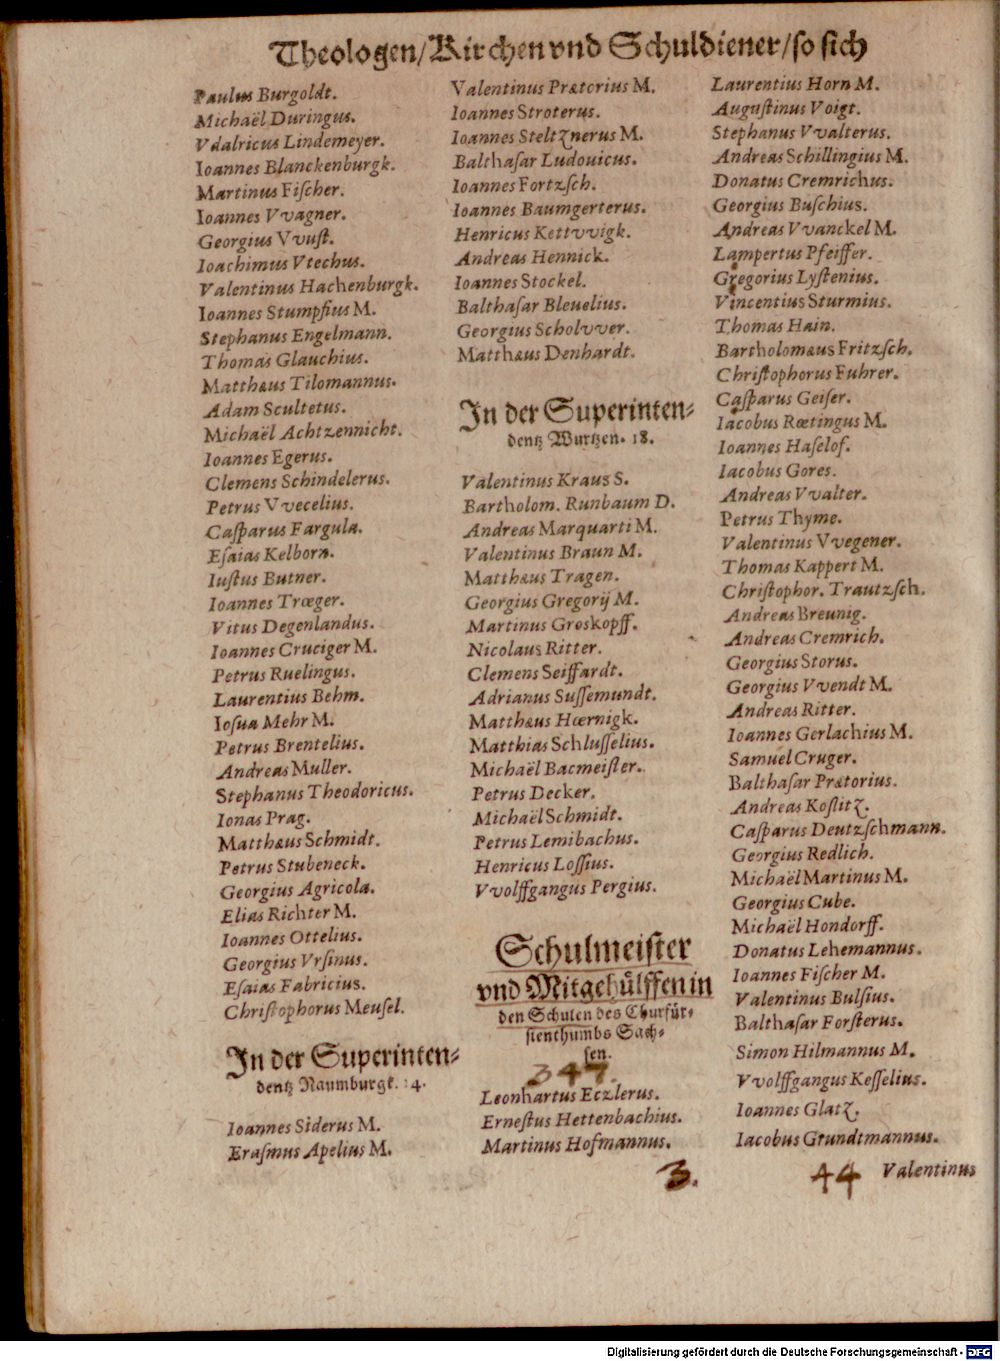 Theologen/Kirchen vnd Schuldiener/so sich
Paulus Burgoldt.
Michaël Duringus.
Vdalricus Lindemeyer.
Ioannes Blanckenburgk.
Martinus Fiſcher.
Ioannes Vvagner.
Georgius Vvuſt.
Ioachimus Vtechus.
Valentinus Hachenburgk.
Ioannes Stumpfius M.
Stephanus Engelmann.
Thomas Glauchius.
Matthæus Tilomannus.
Adam Scultetus.
Michaël Achtzennicht.
Ioannes Egerus.
Clemens Schindelerus.
Petrus Vvecelius.
Caſparus Fargula.
Eſaias Kelborn.
Iuſtus Butner.
Ioannes Trœger.
Vitus Degenlandus.
Ioannes Cruciger M.
Petrus Ruelingus.
Laurentius Behm.
Ioſua Mehr M.
Petrus Brentelius.
Andreas Muller.
Stephanus Theodoricus.
Ionas Prag.
Matthæus Schmidt.
Petrus Stubeneck.
Georgius Agricola.
Elias Richter M.
Ioannes Ottelius.
Georgius Vrſinus.
Eſaias Fabricius.
Chriſtophorus Meuſel.
In der Superinten-
dentz Naumburgk. 14.
Ioannes Siderus M.
Eraſmus Apelius M.
Valentinus Prætorius M.
Ioannes Stroterus.
Ioannes Steltznerus M.
Balthaſar Ludouicus.
Ioannes Fortzſch.
Ioannes Baumgerterus.
Henricus Kettvvigk.
Andreas Hennick.
Ioannes Stockel.
Balthaſar Bleuelius.
Georgius Scholvver.
Matthæus Denhardt.
In der Superinten-
dentz Wurtzen. 18.
Valentinus Kraus S.
Bartholom. Runbaum D.
Andreas Marquarti M.
Valentinus Braun M.
Matthæus Tragen.
Georgius Gregorij M.
Martinus Groskopff.
Nicolaus Ritter.
Clemens Seiffardt.
Adrianus Suſſemundt.
Matthæus Hœrnigk.
Matthias Schluſſelius.
Michaël Bacmeiſter.
Petrus Decker.
Michaël Schmidt.
Petrus Lemibachus.
Henricus Loſſius.
Vvolffgangus Pergius.
Schulmeister
vnd Mitgehülffen in
den Schulen des Churfür-
stenthumbs Sach-
sen.
347.
Leonhartus Eczlerus.
Erneſtus Hettenbachius.
Martinus Hofmannus.
3.
Laurentius Horn M.
Auguſtinus Voigt.
Stephanus Vvalterus.
Andreas Schillingius M.
Donatus Cremrichus.
Georgius Buſchius.
Andreas Vvanckel M.
Lampertus Pfeiffer.
Gregorius Lyſtenius.
Vincentius Sturmius.
Thomas Hain.
Bartholomæus Fritzſch.
Chriſtophorus Fuhrer.
Caſparus Geiſer.
Iacobus Rœtingus M.
Ioannes Haſelof.
Iacobus Gores.
Andreas Vvalter.
Petrus Thyme.
Valentinus Vvegener.
Thomas Kappert M.
Chriſtophor. Trautzſch.
Andreas Breunig.
Andreas Cremrich.
Georgius Storus.
Georgius Vvendt M.
Andreas Ritter.
Ioannes Gerlachius M.
Samuel Cruger.
Balthaſar Prætorius.
Andreas Koſlitz.
Caſparus Deutzſchmann.
Georgius Redlich.
Michaël Martinus M.
Georgius Cube.
Michaël Hondorff.
Donatus Lehemannus.
Ioannes Fiſcher M.
Valentinus Bulſius.
Balthaſar Forſterus.
Simon Hilmannus M.
Vvolffgangus Keſſelius.
Ioannes Glatz.
Iacobus Grundtmannus.
44
Valentinus
Digitalisierung gefördert durch die Deutsche Forschungsgemeinschaft - DFG